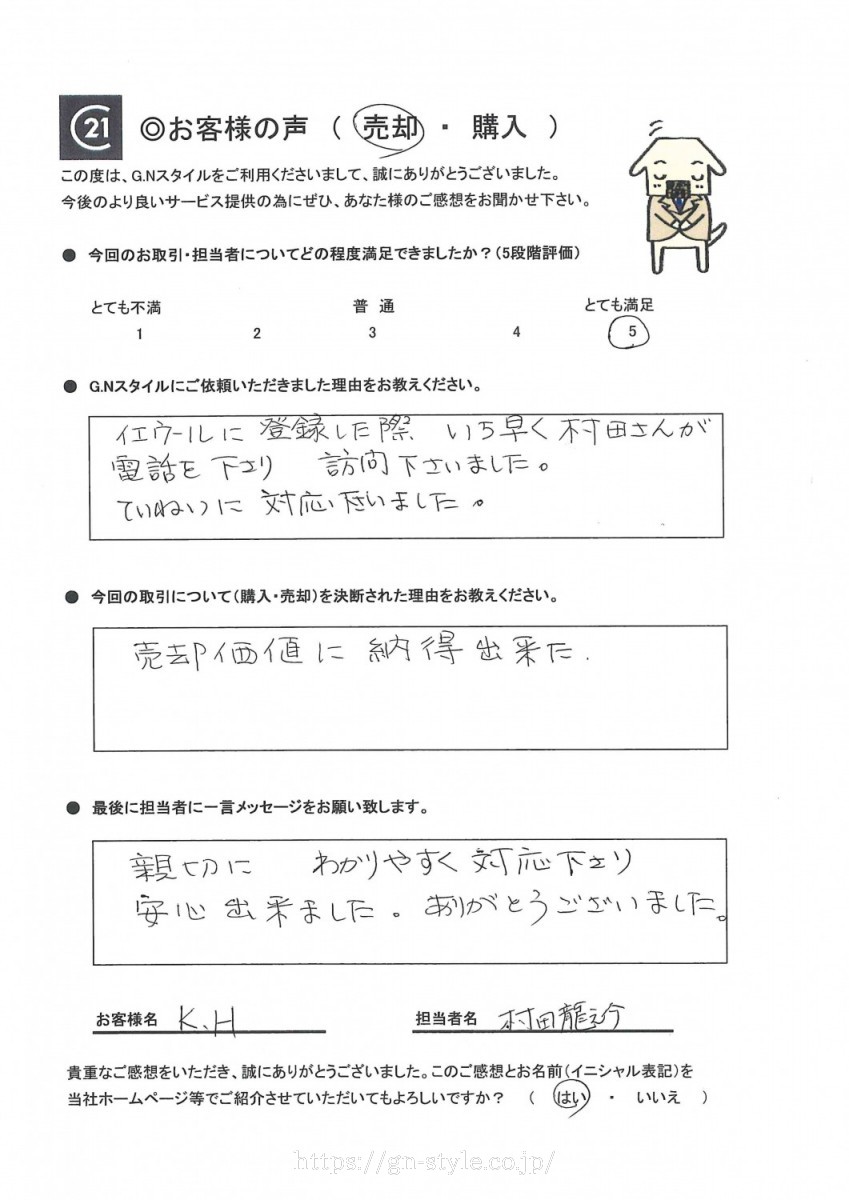 C21 ◎お客様の声 ( 売却 ・ 購入 )
この度は、G.Nスタイルをご利用くださいまして、誠にありがとうございました。
今後のより良いサービス提供の為にぜひ、あなた様のご感想をお聞かせ下さい。
● 今回のお取引・担当者についてどの程度満足できましたか？(5段階評価)
とても不満 普 通 とても満足
1 2 3 4 5
● G.Nスタイルにご依頼いただきました理由をお教えください。
イエウールに 登録した際 いち早く 村田さんが
電話を 下さり 訪問下さいました。
ていねいに 対応下さいました。
● 今回の取引について(購入・売却)を決断された理由をお教えください。
売却価値に 納得出来た.
● 最後に担当者に一言メッセージをお願い致します。
親切に わかりやすく 対応下さり
安心出来ました。ありがとうございました。
お客様名 K.H 担当者名 村田龍之介
貴重なご感想をいただき、誠にありがとうございました。このご感想とお名前(イニシャル表記)を
当社ホームページ等でご紹介させていただいてもよろしいですか？ ( はい ・ いいえ )
https://gn-style.co.jp/